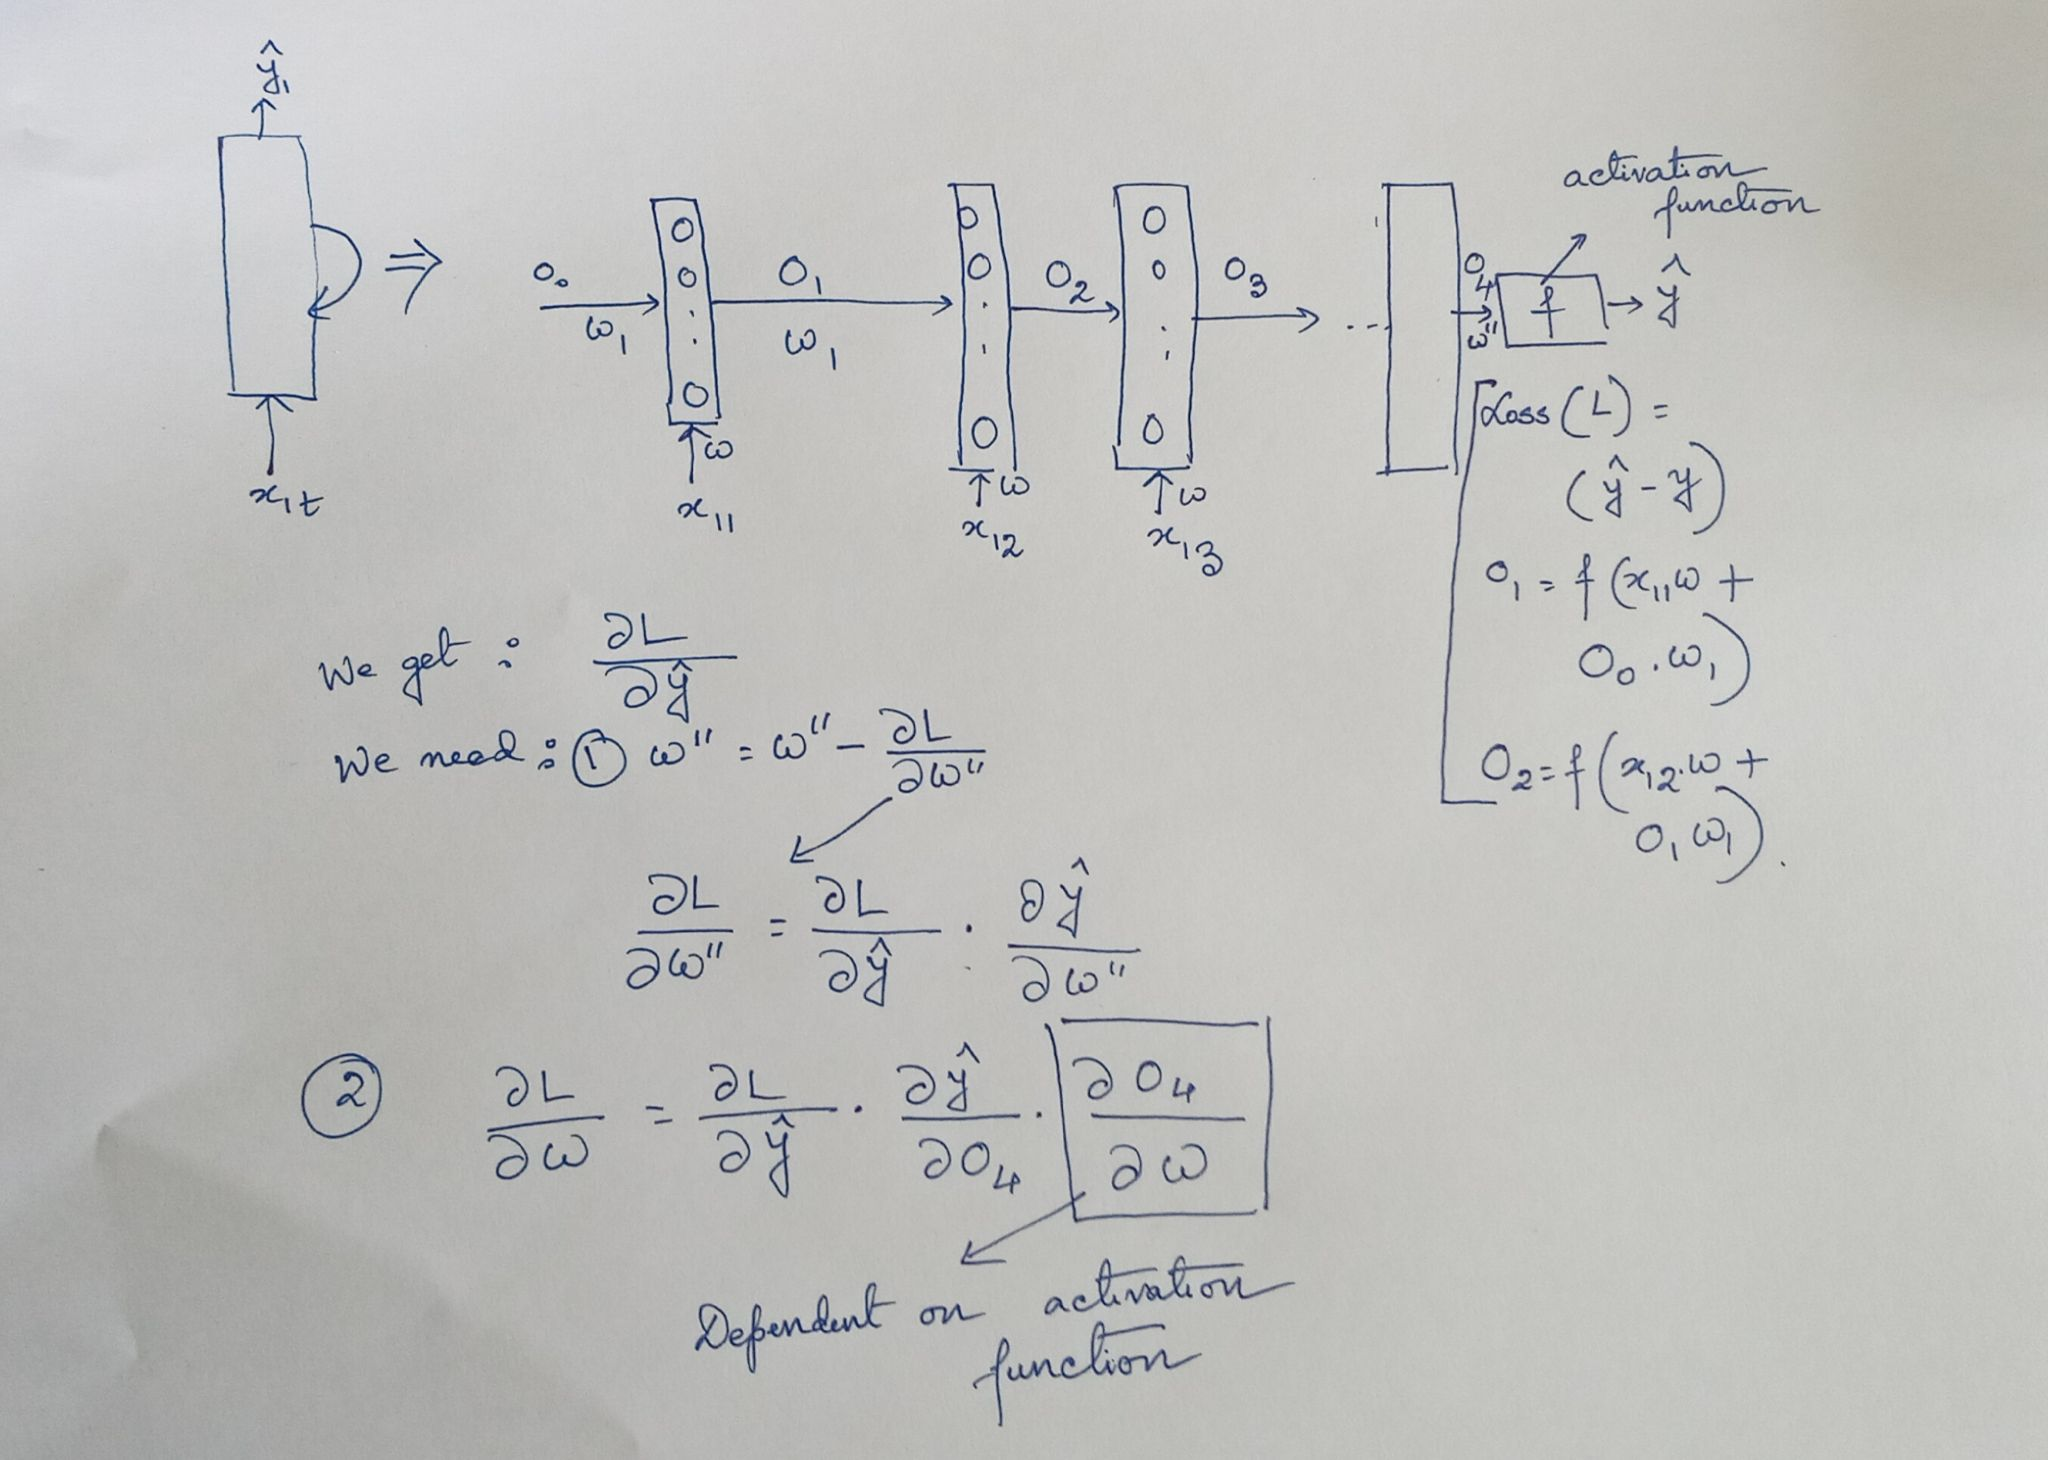 ŷ₁
x₁t
⇒
O₀
ω₁
ω
x₁₁
O₁
ω₁
ω
x₁₂
O₂
ω
x₁₃
O₃
...
O₄
ω''
f
activation
function
ŷ
Loss (L) =
(ŷ - y)
O₁ = f (x₁₁ω +
O₀ . ω₁)
O₂ = f (x₁₂.ω +
O₁ ω₁).
We get : ∂L / ∂ŷ
We need : ① ω'' = ω'' - ∂L / ∂ω''
∂L / ∂ω'' = ∂L / ∂ŷ . ∂ŷ / ∂ω''
② ∂L / ∂ω = ∂L / ∂ŷ . ∂ŷ / ∂O₄ . ∂O₄ / ∂ω
Dependent on activation
function